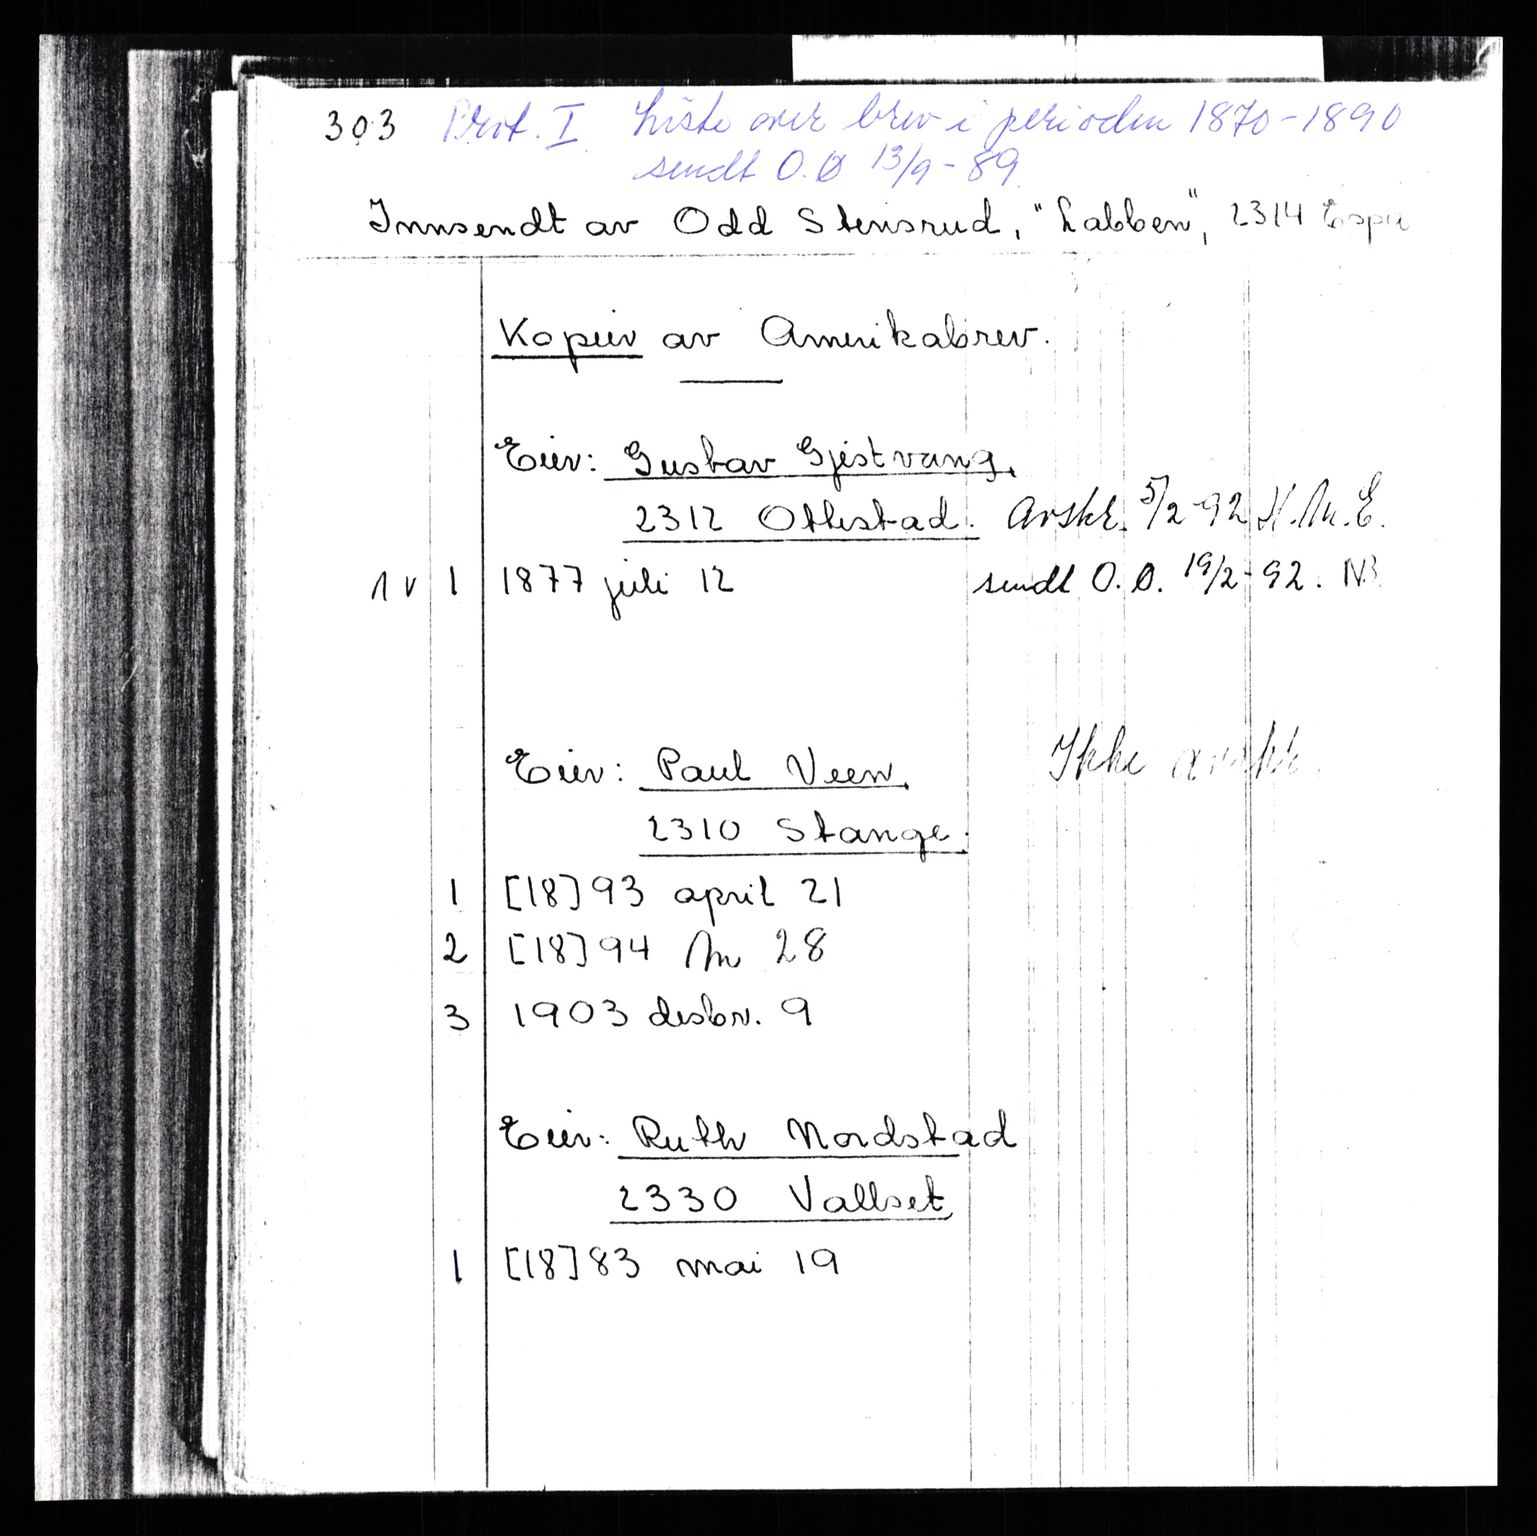 303 Prot. I Liste over brev i perioden 1870-1890
sendt O.Ø 13/9-89
Innsendt av Odd Stensrud, "Labben", 2314 Espa
Kopier av Amerikabrev.
Eier: Gustav Gjestvang,
2312 Ottestad. Avskr. 5/2-92 H.M.E.
1 1877 juli 12 sendt O.Ø. 19/2-92. NB
Eier: Paul Veen, Ikke avskr.
2310 Stange.
1 [18]93 april 21
2 [18]94 M 28
3 1903 desbr. 9
Eier: Ruth Nordstad
2330 Vallset,
1 [18]83 mai 19